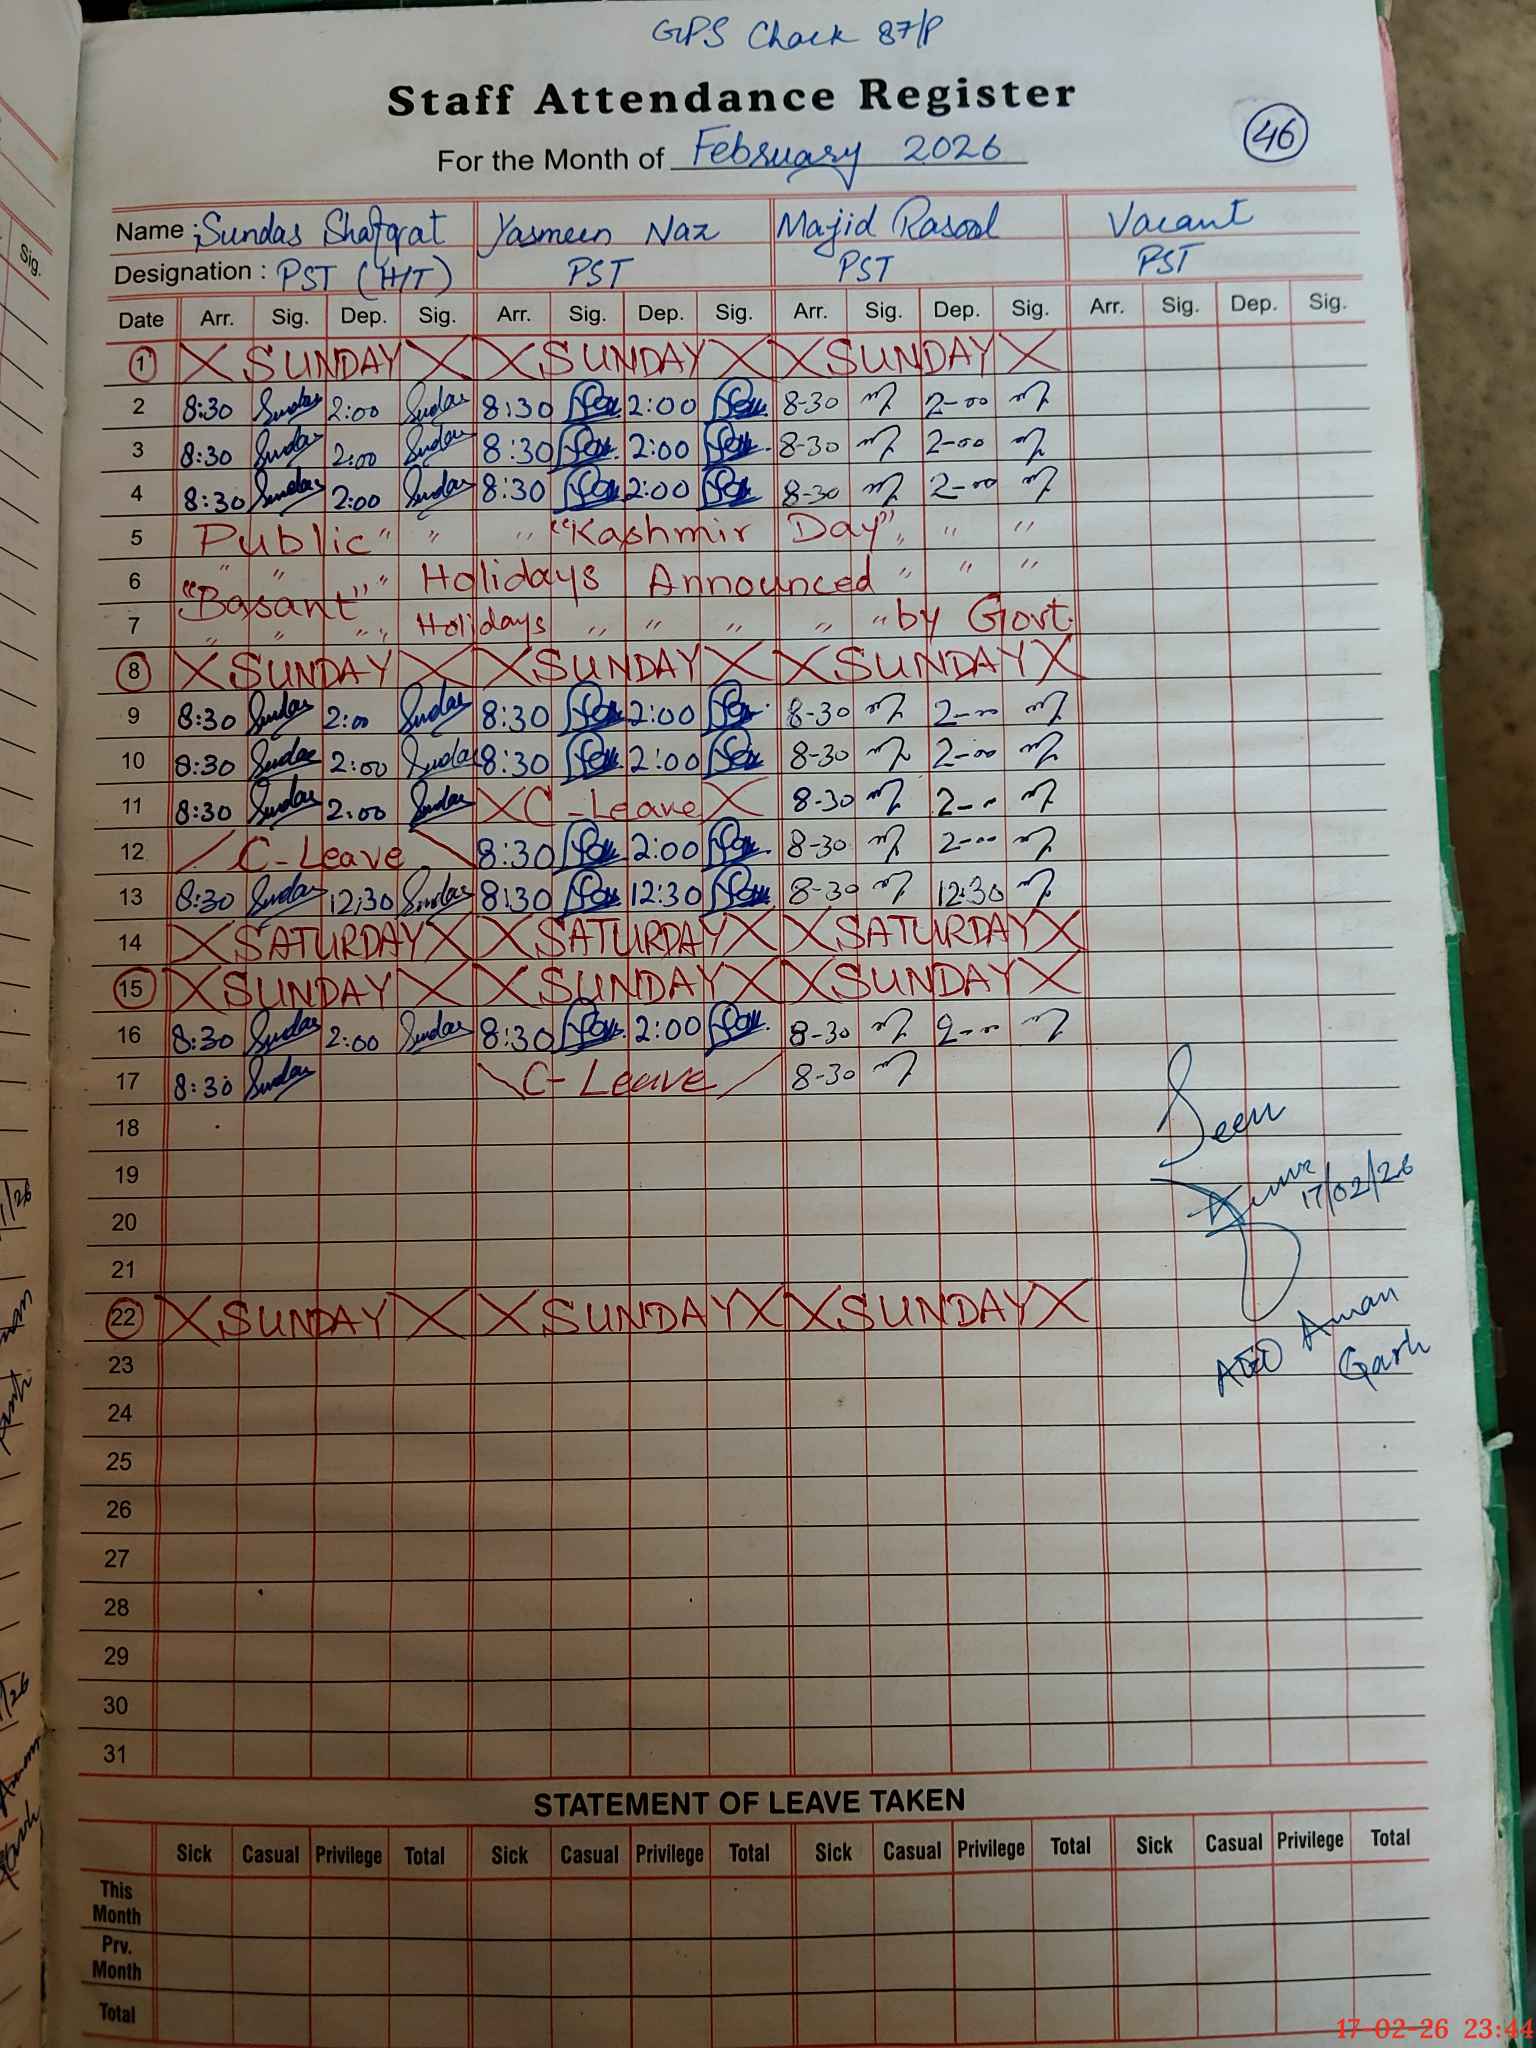 GPS Chack 87/P
Staff Attendance Register
46
For the Month of February 2026
Name : Sundas Shafqat Yasmeen Naz Majid Rasool Vacant
Designation : PST (H/T) PST PST PST
Date Arr. Sig. Dep. Sig. Arr. Sig. Dep. Sig. Arr. Sig. Dep. Sig. Arr. Sig. Dep. Sig.
1 SUNDAY SUNDAY SUNDAY
2 8:30 Sundas 2:00 Sundas 8:30 2:00 8-30 2-00
3 8:30 Sundas 2:00 Sundas 8:30 2:00 8-30 2-00
4 8:30 Sundas 2:00 Sundas 8:30 2:00 8-30 2-00
5 Public " " " "Kashmir Day" " "
6 " " " Holidays Announced " " "
7 "Basant" " " " Holidays " " " " " by Govt.
8 SUNDAY SUNDAY SUNDAY
9 8:30 Sundas 2:00 Sundas 8:30 2:00 8-30 2-00
10 8:30 Sundas 2:00 Sundas 8:30 2:00 8-30 2-00
11 8:30 Sundas 2:00 Sundas C-Leave 8-30 2-0
12 C-Leave 8:30 2:00 8-30 2-00
13 8:30 Sundas 12:30 Sundas 8:30 12:30 8-30 12:30
14 SATURDAY SATURDAY SATURDAY
15 SUNDAY SUNDAY SUNDAY
16 8:30 Sundas 2:00 Sundas 8:30 2:00 8-30 2-00
17 8:30 Sundas C-Leave 8-30
18
Seen
19
17/02/26
20
21
22 SUNDAY SUNDAY SUNDAY
AEO Aman
23
Garh
24
25
26
27
28
29
30
31
STATEMENT OF LEAVE TAKEN
Sick Casual Privilege Total Sick Casual Privilege Total Sick Casual Privilege Total Sick Casual Privilege Total
This
Month
Prv.
Month
Total
17-02-26 23:44
Sig.